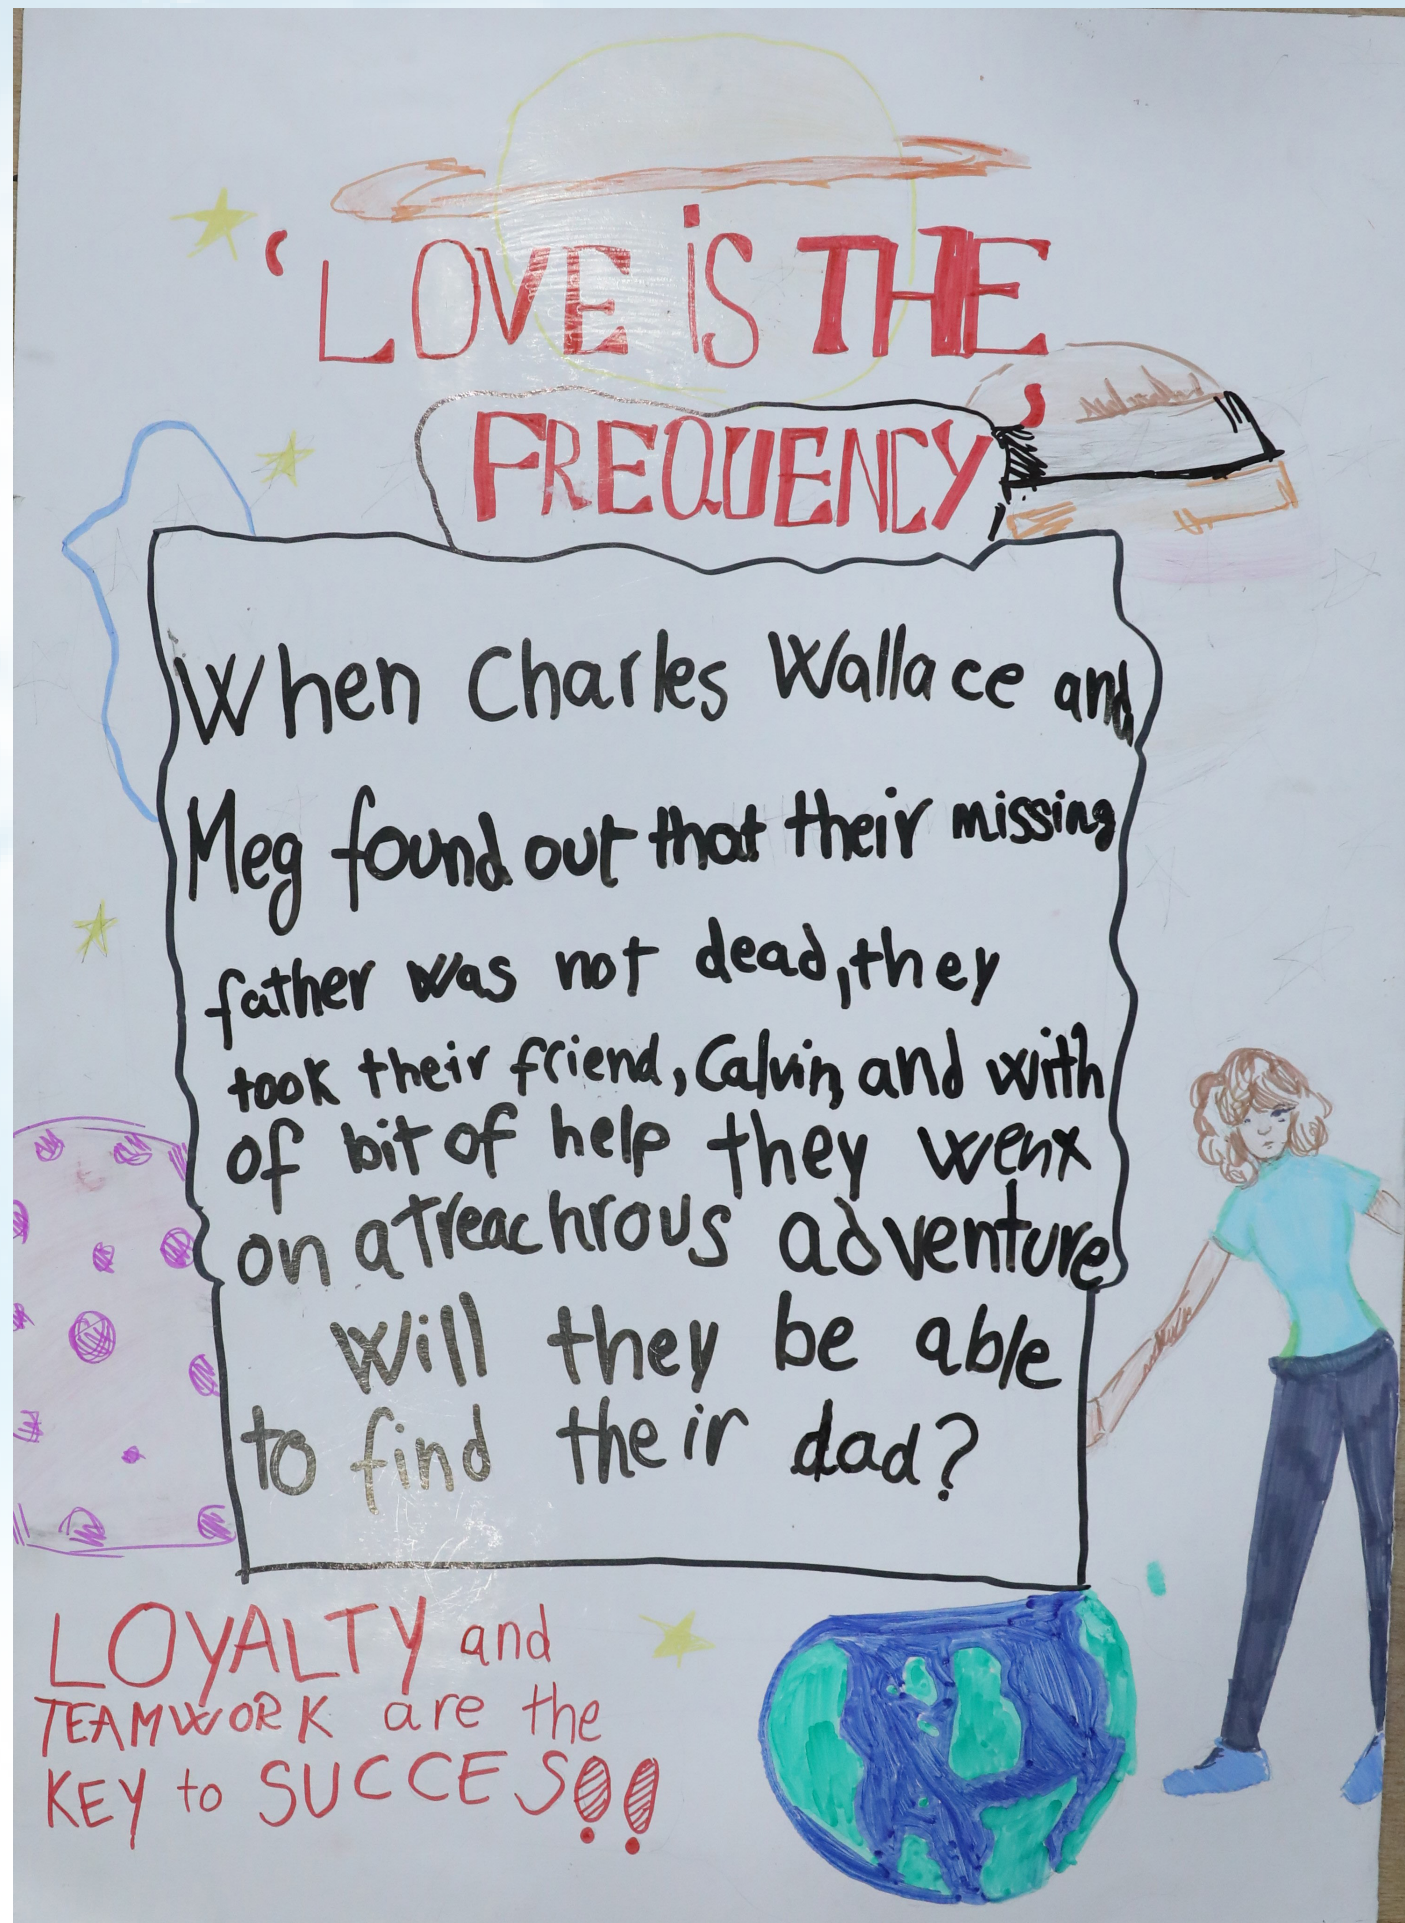 'LOVE iS THE
FREQUENCY'
When Charles Wallace and
Meg found out that their missing
father was not dead, they
took their friend, Calvin, and with
of bit of help they went
on a treachrous adventure
Will they be able
to find their dad?
LOYALTY and
TEAMWORK are the
KEY to SUCCES!!